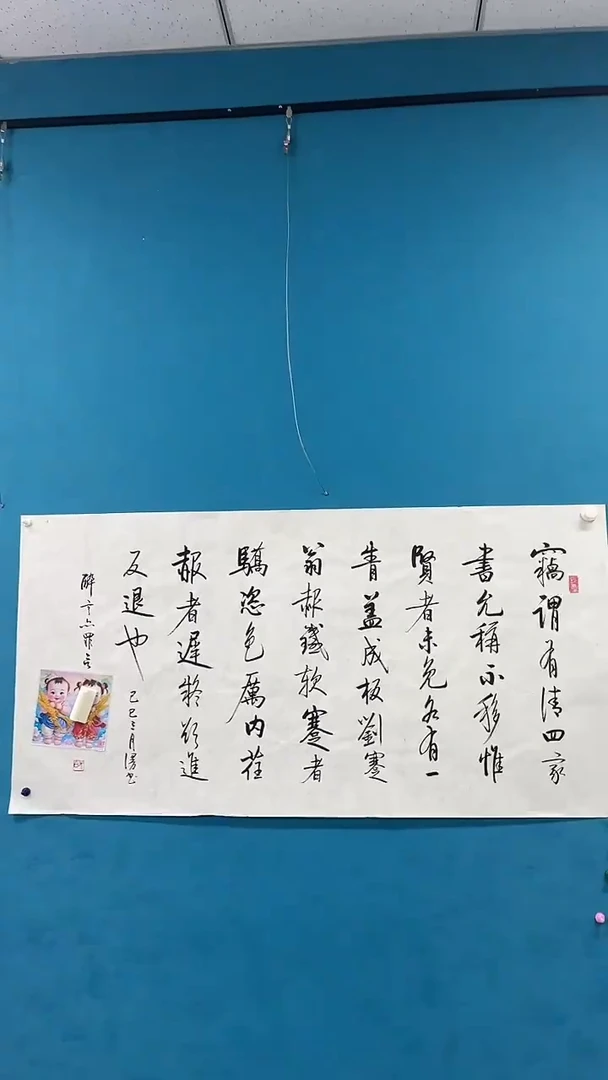 竊谓有清四家
書允稱不移惟
賢者未免各有一
眚蓋成板劉蹇
翁赧鐵软蹇者
驕恣色厲内荏
赧者遲聆欲進
反退也
乙巳三月